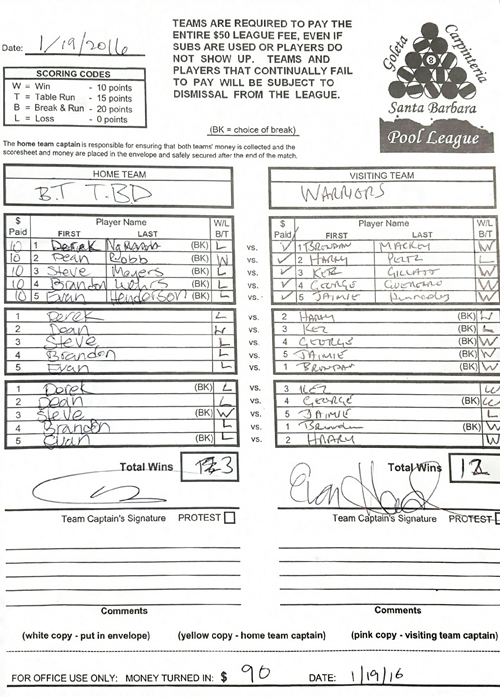 Date: 1/19/2016
TEAMS ARE REQUIRED TO PAY THE
ENTIRE $50 LEAGUE FEE, EVEN IF
SUBS ARE USED OR PLAYERS DO
NOT SHOW UP. TEAMS AND
PLAYERS THAT CONTINUALLY FAIL
TO PAY WILL BE SUBJECT TO
DISMISSAL FROM THE LEAGUE.
Goleta Carpinteria
8
Santa Barbara
Pool League
SCORING CODES
W = Win - 10 points
T = Table Run - 15 points
B = Break & Run - 20 points
L = Loss - 0 points
(BK = choice of break)
The home team captain is responsible for ensuring that both teams' money is collected and the
scoresheet and money are placed in the envelope and safely secured after the end of the match.
HOME TEAM VISITING TEAM
B.T T.BD WARRIORS
$ Paid Player Name FIRST LAST W/L B/T $ Paid Player Name FIRST LAST W/L B/T
10 1 Derek (BK) L vs. ✓ 1 BRENDAN MACKEY W
10 2 Dean Robb (BK) W vs. ✓ 2 HARRY L
10 3 Steve Meyers (BK) L vs. ✓ 3 KEZ GILLATT W
10 4 Brandon (BK) L vs. ✓ 4 GEORGE GUERRERO W
10 5 Evan Henderson (BK) L vs. ✓ 5 JAIMIE W
1 Derek L vs. 2 HARRY (BK) W
2 Dean W vs. 3 KEZ (BK) L
3 Steve L vs. 4 GEORGE (BK) W
4 Brandon L vs. 5 JAIMIE (BK) W
5 Evan L vs. 1 BRENDAN (BK) W
1 Derek (BK) L vs. 3 KEZ W
2 Dean L vs. 4 GEORGE (BK) W
3 Steve (BK) W vs. 5 JAIMIE L
4 Brandon L vs. 1 Brendan (BK) W
5 Evan (BK) L vs. 2 HARRY W
Total Wins 3 Total Wins 12
Team Captain's Signature PROTEST Team Captain's Signature PROTEST
Comments Comments
(white copy - put in envelope) (yellow copy - home team captain) (pink copy - visiting team captain)
FOR OFFICE USE ONLY: MONEY TURNED IN: $ 90 DATE: 1/19/16